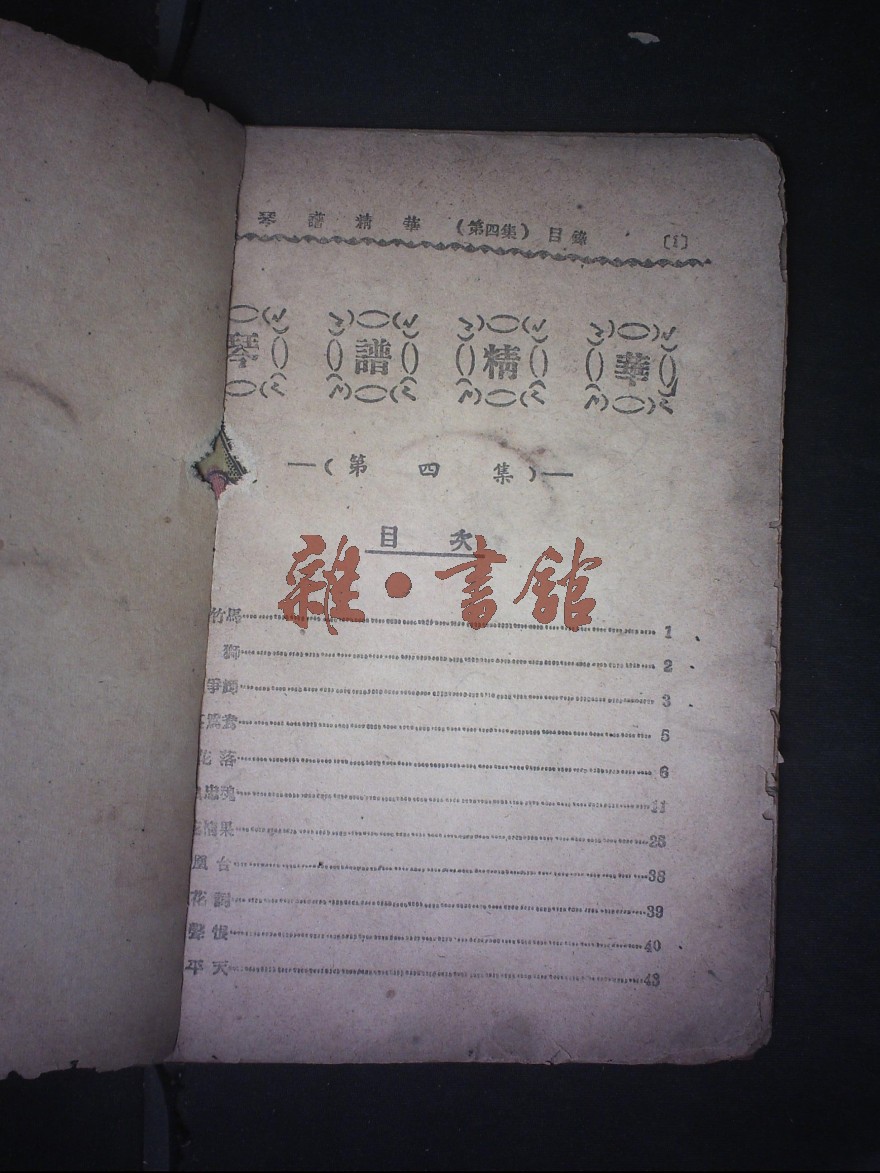 琴譜精華 (第四集) 目錄 〔1〕
琴譜精華
—(第四集)—
目次
雜·書館
竹馬 1
獅 2
爭 3
5
花落 6
忠魂 11
果 25
台 38
花詞 39
聲恨 40
平天 43